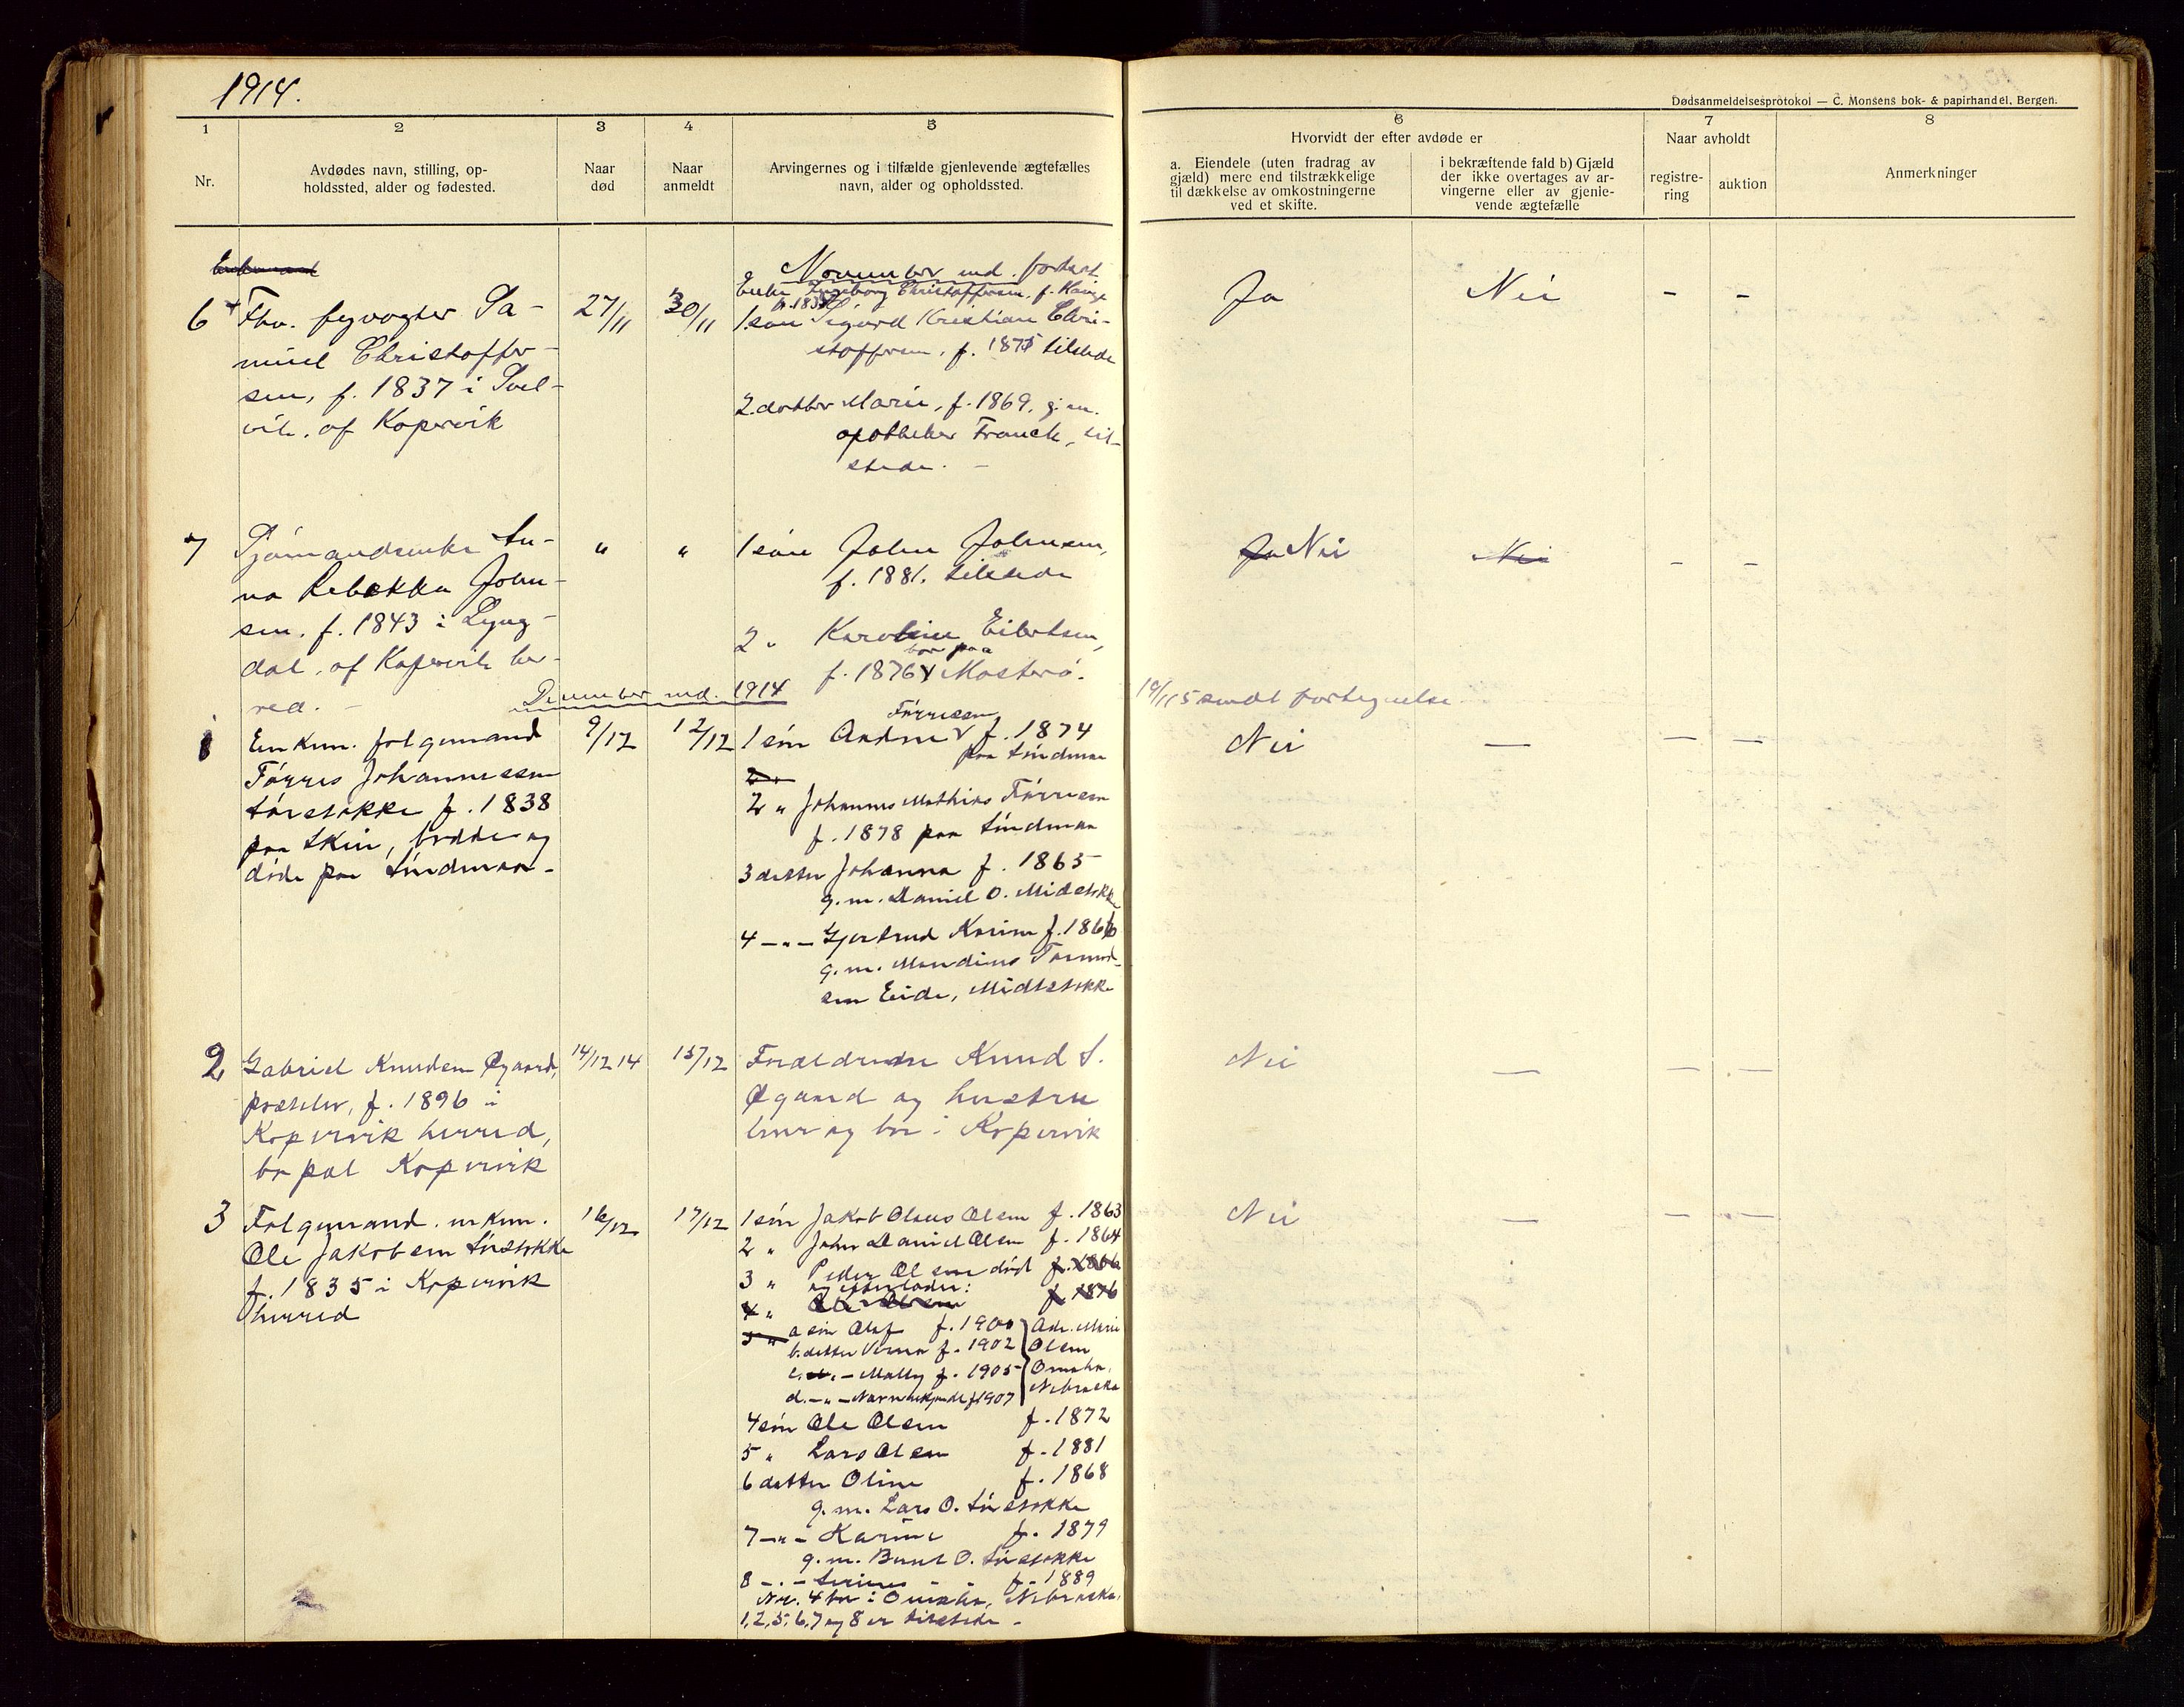 1914.
Dødsanmeldelsesprotokol — C. Monsens bok- & papirhandel, Bergen.
1
2
3
4
5
6
7
8
Nr.
Avdødes navn, stilling, op-
holdssted, alder og fødested.
Naar
død
Naar
anmeldt
Arvingernes og i tilfælde gjenlevende ægtefælles
navn, alder og opholdssted.
Hvorvidt der efter avdøde er
a. Eiendele (uten fradrag av
gjæld) mere end tilstrækkelige
til dækkelse av omkostningerne
ved et skifte.
i bekræftende fald b) Gjæld
der ikke overtages av ar-
vingerne eller av gjenle-
vende ægtefælle
Naar avholdt
registre-
ring
auktion
Anmerkninger
November md. fortsat
6
Fhv. fyrvogter Sa-
muel Christoffer-
sen, f. 1837 i Svel-
vik, af Kopervik
27/11
30/11
Enke Ingeborg Christoffersen, f.
1 søn Sigurd Kristian Chri-
stoffersen, f. 1875 tilstede
2. datter Marie, f. 1869, g. m.
apotheker Franck, til-
stede. -
Ja
Nei
- -
7
Sjømandsenke An-
na Rebekka John-
sen, f. 1843 i Lyng-
dal, af Kopervik her-
red. -
"
"
1 søn John Johnsen,
f. 1881. tilstede
2 " Karoline Eilertsen,
bor paa
f. 1876 Mosterø.
Ja Nei
Nei
- -
December md. 1914
10/1 15 sendt fortegnelse
1
Enkem. folgemand
Tørres Johannessen
Sørstokke f. 1838
paa Skeie, bodde og
døde paa Sundmaa.
9/12
12/12
1 søn Andreas Tørresen f. 1874
paa Sundmaa
2 " Johannes Mathias Tørresen
f. 1878 paa Sundmaa
3 datter Johanna f. 1865
g. m. Daniel O. Midtstokke
4 — " — Gjertrud Karine f. 1866
g. m. Mandius Tormod-
sen Eide, Midtstokke
Nei
— — —
2
Gabriel Knudsen Øgaard,
f. 1896 i
Kopervik herred,
bopæl Kopervik
14/12 14
15/12
Forældrene Knud S.
Øgaard og hustru
bor i Kopervik
Nei
— — —
3
Folgemand. enkem.
Ole Jakobsen Sørstokke
f. 1835 i Kopervik
herred
16/12
17/12
1 søn Jakob Olaus Olsen f. 1863
2 " John Daniel Olsen f. 1864
3 " Peder Olsen død f. 1866
og efterlader:
4 " Ole Olsen f. 1876
5 "
a søn Olaf f. 1900
b. datter Verna f. 1902
c. — " — Mally f. 1905
d. — " — Navn ukjendt f. 1907
Adr. Marie
Olsen
Omaha,
Nebraska
4 søn Ole Olsen f. 1872
5 " Lars Olsen f. 1881
6 datter Oline f. 1868
g. m. Lars O. Sørstokke
7 — " — Karine f. 1879
g. m. Bernt O. Sørstokke
8 — " — Serine f. 1889
Nr. 4 bor i Omaha, Nebraska,
1, 2, 5, 6, 7 og 8 er tilstede -
Nei
— — —